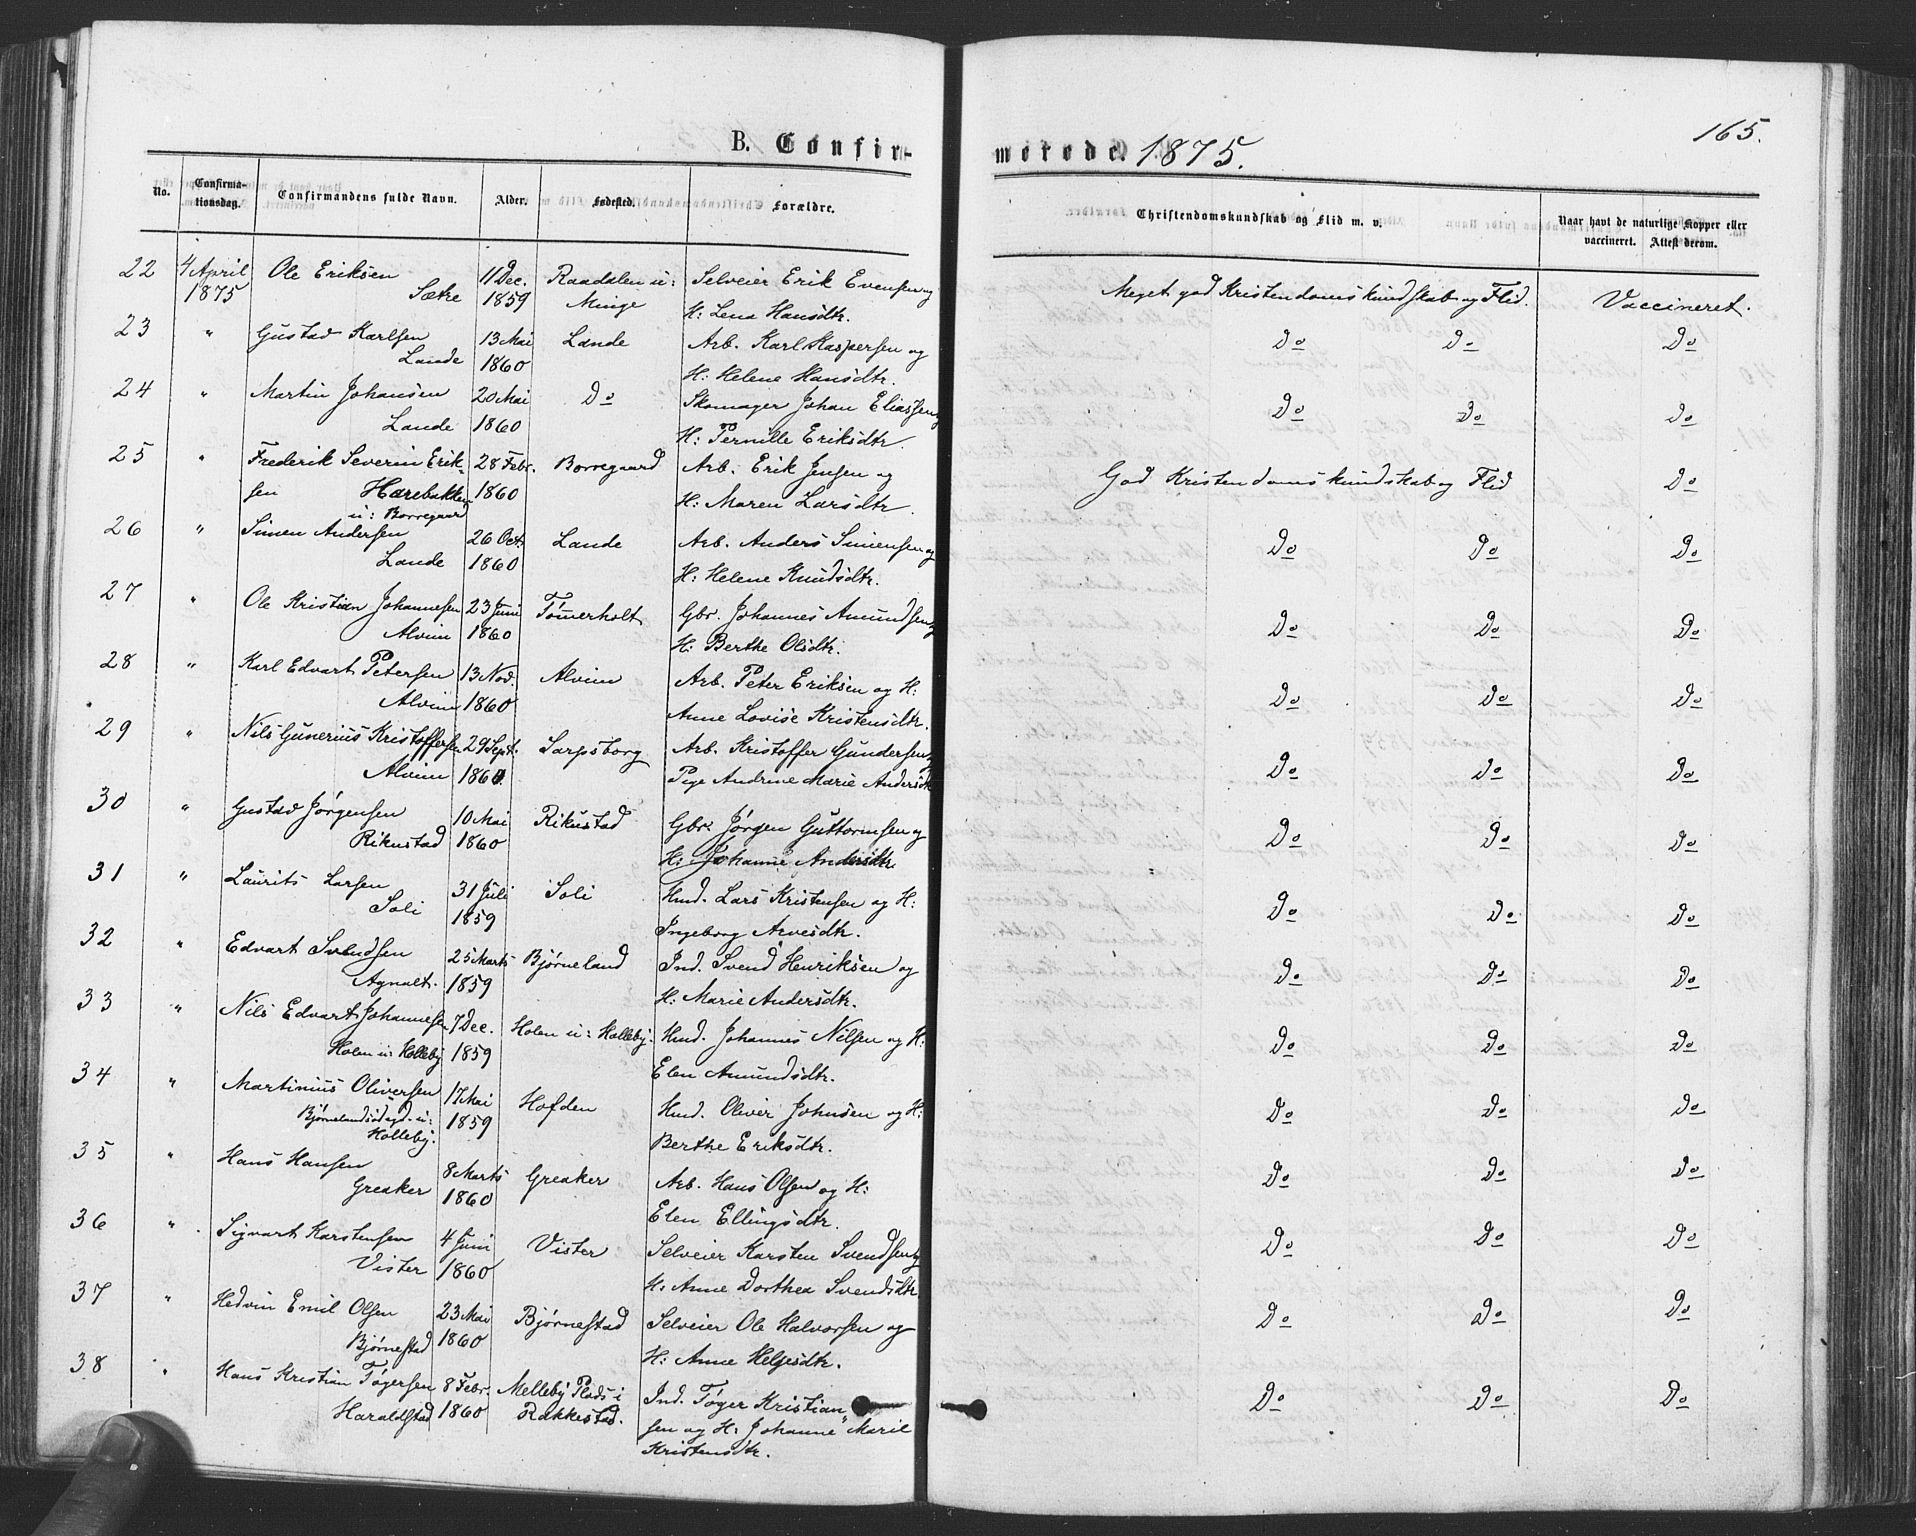 B. Confir-
merede. 1875.
165.
No.
Confirma-
tionsdag.
Confirmandens fulde Navn.
Alder.
Fødested.
Forældre.
Christendomskundskab og Flid m. v.
Naar havt de naturlige Kopper eller
vaccineret. Attest derom.
22 4 April Ole Eriksen 11 Dec. Raadalen u: Selveier Erik Evensen og
1875 Sætre 1859 Minge H: Lena Hansdtr. Meget god Kristendomskundskab og Flid. Vaccineret.
23 " Gustav Karlsen 13 Mai Lande Arb. Karl Kaspersen og Do Do Do
Lande 1860 H: Helene Hansdtr.
24 " Martin Johansen 20 Mai Do Skomager Johan Eliassen og Do Do Do
Lande 1860 H: Pernille Eriksdtr.
25 " Frederik Severin Erik- 28 Febr. Borregaard Arb. Erik Jensen og God Kristendomskundskab og Flid Do
sen Harebakken 1860 H: Maren Larsdtr.
u: Borregaard
26 " Simen Andersen 26 Oct. Lande Arb. Anders Simensen og Do Do Do
Lande 1860 H: Helene Knudsdtr.
27 " Ole Kristian Johannesen 23 Juni Tømerholt Gbr. Johannes Amundsen og Do Do Do
Alvim 1860 H: Berthe Olsdtr.
28 " Karl Edvart Petersen 13 Nov. Alvim Arb. Peter Eriksen og H: Do Do Do
Alvim 1860 Anne Lovise Kristensdtr.
29 " Nils Gunerius Kristoffersen 29 Sept. Sarpsborg Arb. Kristoffer Gundersen og Do Do Do
Alvim 1860 Pige Andrine Marie Andersdtr
30 " Gustav Jørgensen 10 Mai Rikustad Gbr. Jørgen Guttormsen og Do Do Do
Rikustad 1860 H: Johanne Andersdtr
31 " Laurits Larsen 31 Juli Soli Hmd. Lars Kristensen og H: Do Do Do
Soli 1859 Ingeborg Arvesdtr.
32 " Edvart Svendsen 25 Marts Bjørneland Ind. Svend Henriksen og Do Do Do
Agnalt. 1859 H: Marie Andersdtr.
33 " Nils Edvart Johannesen 7 Dec. Holen u: Holleby. Hmd. Johannes Nilsen og H: Do Do Do
Holen u: Holleby 1859 Elen Amundsdtr.
34 " Martinius Oliversen 17 Mai Hofden Hmd. Oliver Johnsen og H: Do Do Do
Bjørnelandsødegd. u: 1859 Berthe Eriksdtr.
Holleby.
35 " Hans Hansen 8 Marts Greaker Arb. Hans Olsen og H: Do Do Do
Greaker 1860 Elen Ellingsdtr.
36 " Sigvart Karstensen 4 Juni Vister Selveier Karsten Svendsen og Do Do Do
Vister 1860 H: Anne Dorthea Svendsdtr
37 " Hedvin Emil Olsen 23 Mai Bjørnestad Selveier Ole Halvorsen og Do Do Do
Bjørnestad 1860 H: Anne Helgesdtr.
38 " Hans Kristian Tøgersen 8 Febr. Melleby Plads i Ind. Tøger Kristian Do Do Do
Haraldstad 1860 Rakkestad. sen og H: Johanne Marie
Kristensdtr.